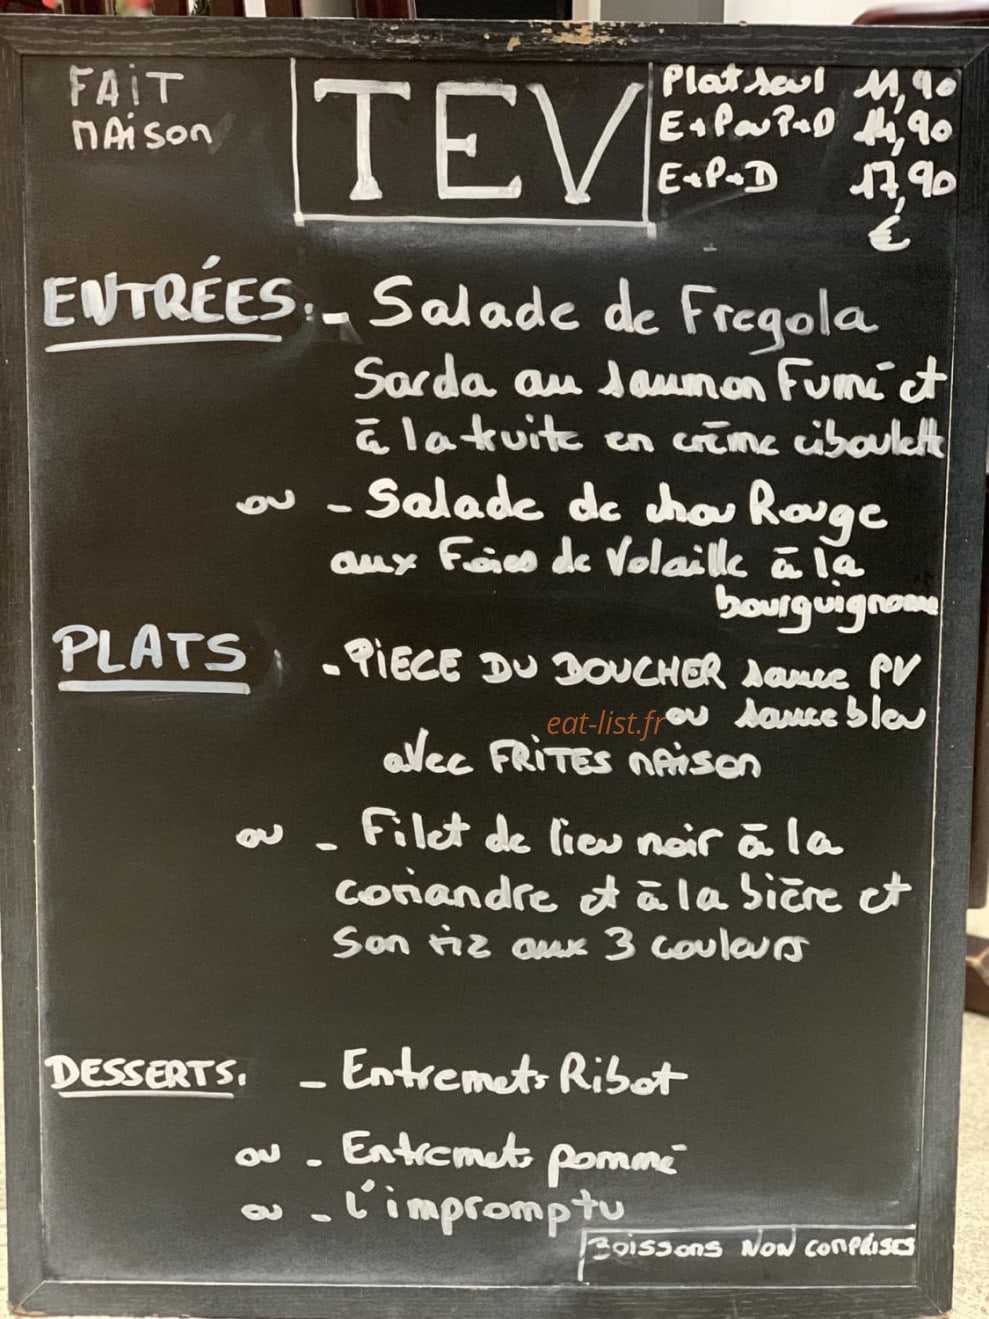 FAIT
MAISON
TEV
Plat seul 11,90
E+P ou P+D 14,90
E+P+D 17,90
€
ENTRÉES. - Salade de Fregola
Sarda au saumon Fumé et
à la truite en crème ciboulette
ou - Salade de chou Rouge
aux Foies de Volaille à la
bourguignonne
PLATS - PIECE DU BOUCHER sauce PV
ou sauce bleu
eat-list.fr
avec FRITES MAISON
ou - Filet de lieu noir à la
coriandre et à la bière et
Son riz aux 3 couleurs
DESSERTS. - Entremets Ribot
ou - Entremets pommé
ou - l'impromptu
Boissons NON COMPRISES